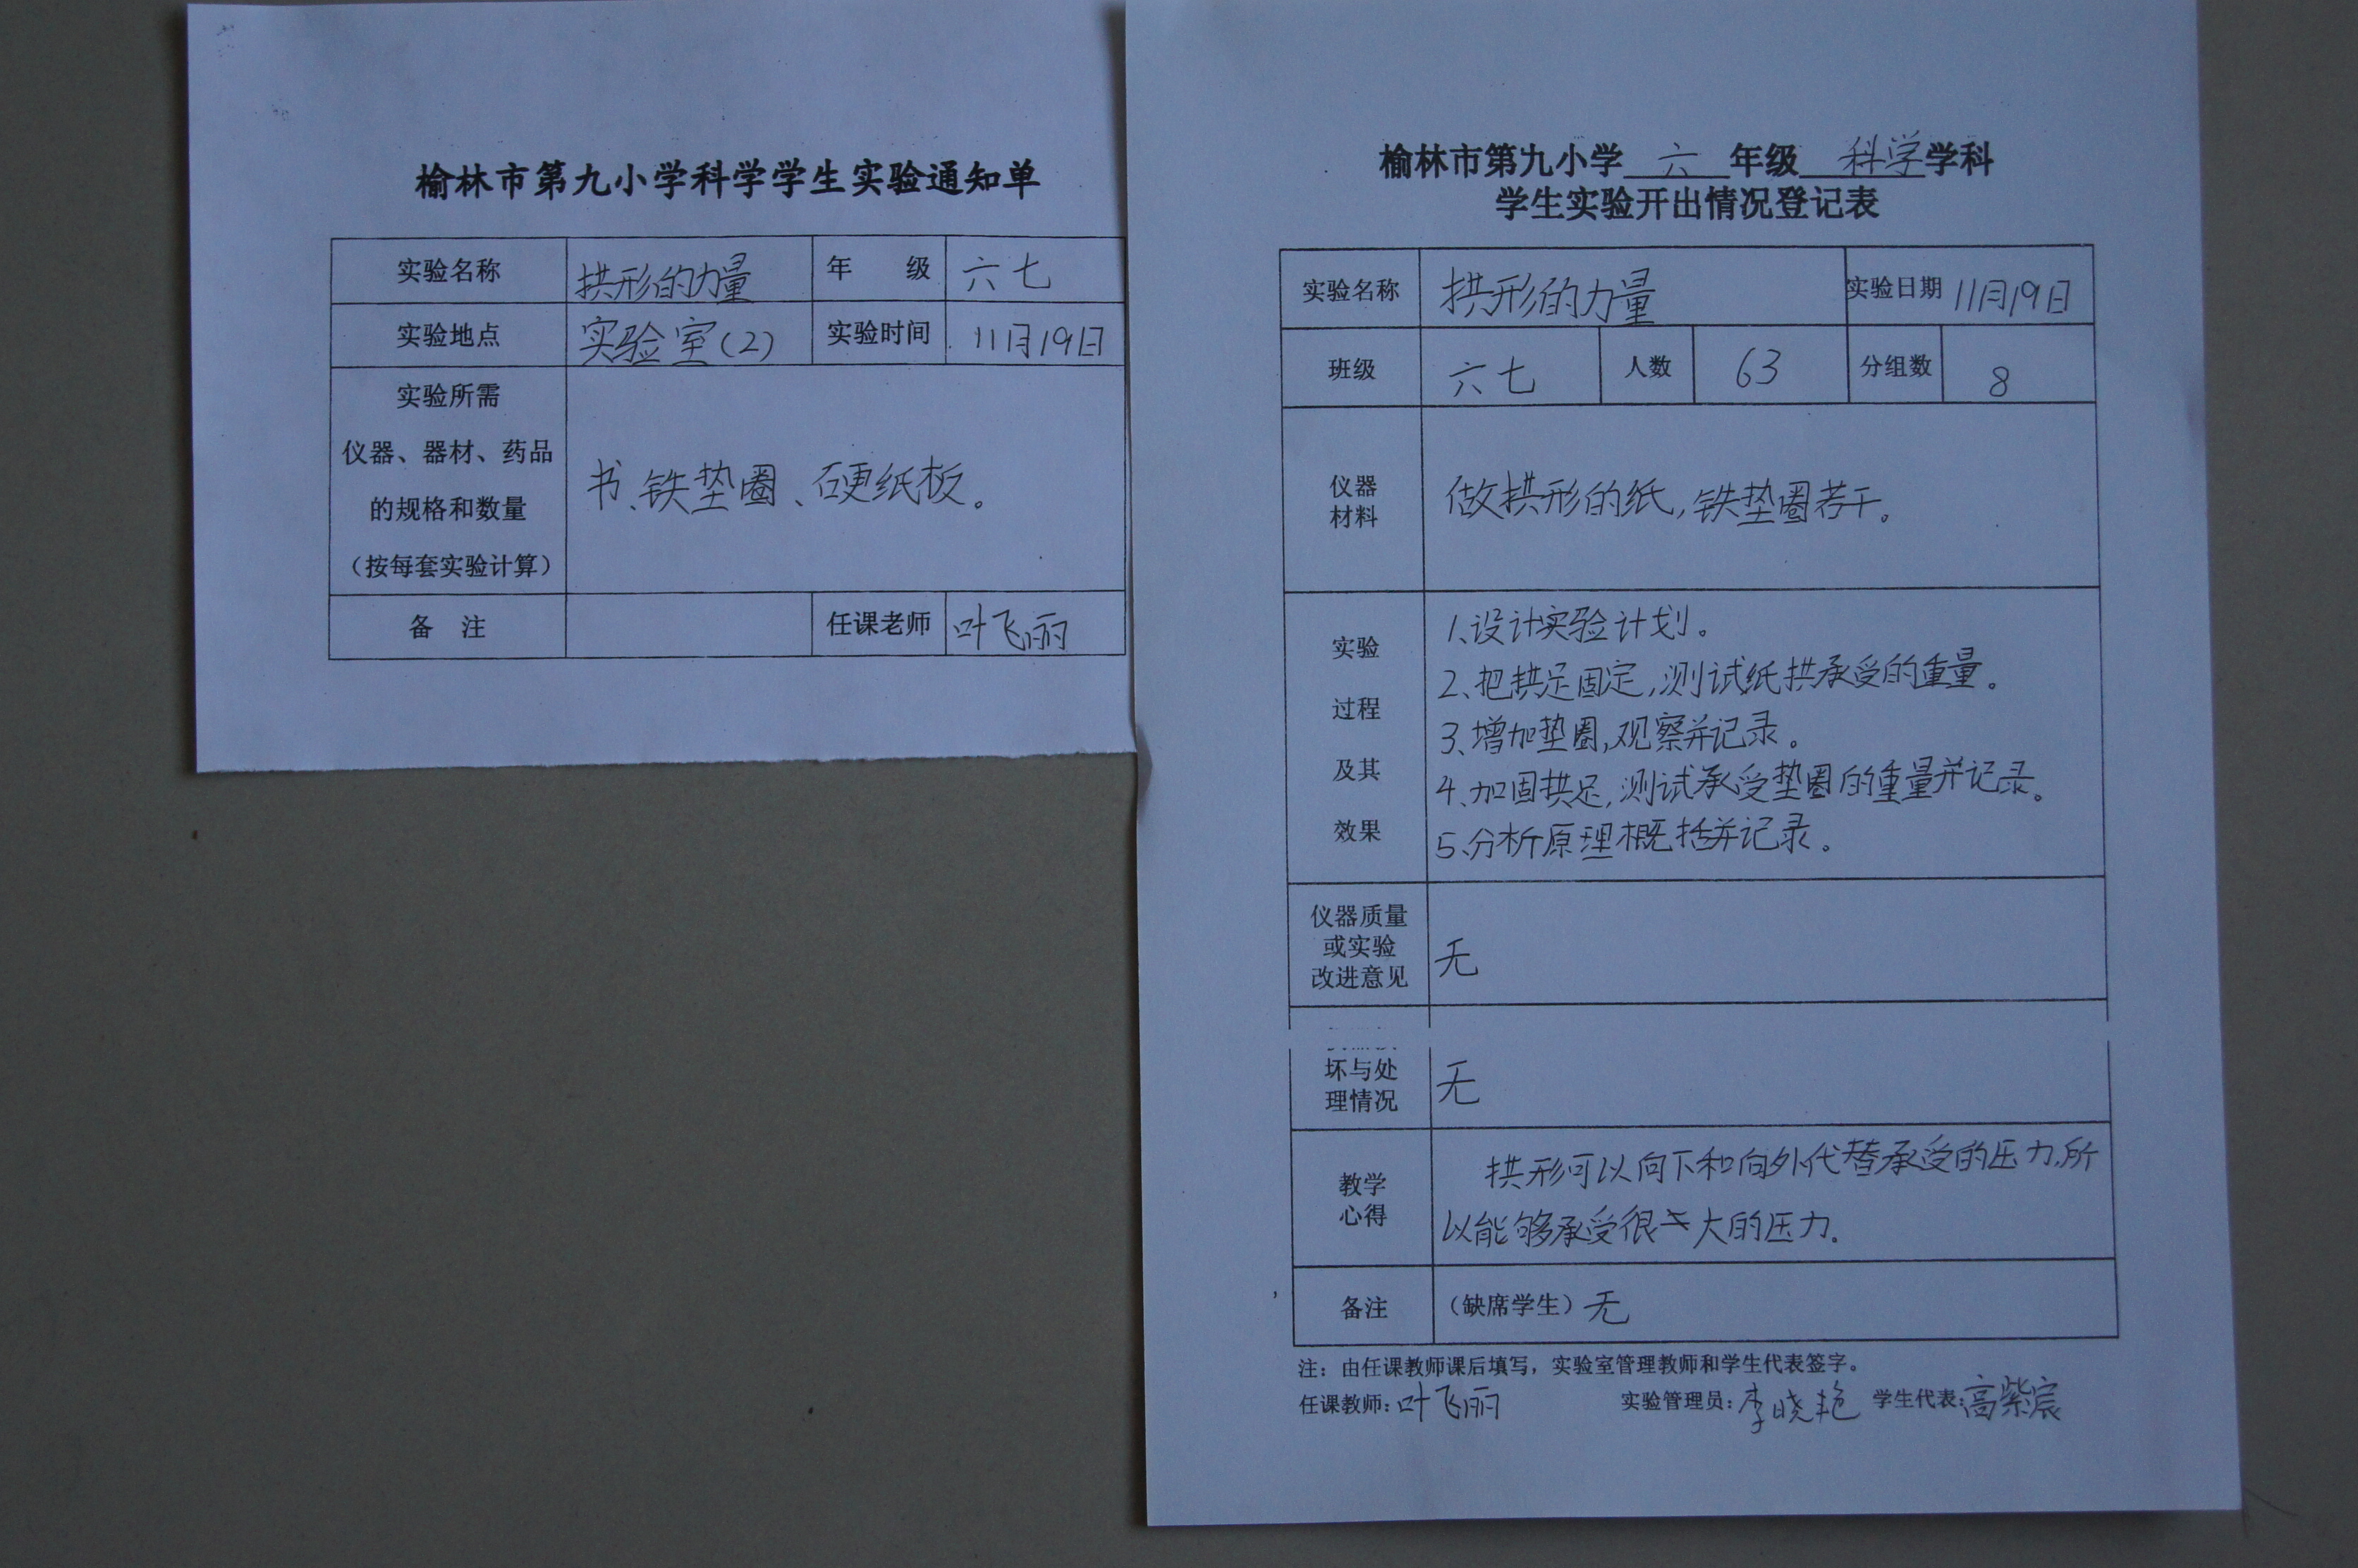 榆林市第九小学科学学生实验通知单
实验名称 拱形的力量 年 级 六七
实验地点 实验室(2) 实验时间 11月19日
实验所需
仪器、器材、药品
的规格和数量
(按每套实验计算)
书、铁垫圈、硬纸板。
备 注 任课老师 叶飞丽
榆林市第九小学 六 年级 科学 学科
学生实验开出情况登记表
实验名称 拱形的力量 实验日期 11月19日
班级 六七 人数 63 分组数 8
仪器
材料
做拱形的纸,铁垫圈若干。
实验
过程
及其
效果
1、设计实验计划。
2、把拱足固定,测试纸拱承受的重量。
3、增加垫圈,观察并记录。
4、加固拱足,测试承受垫圈的重量并记录。
5、分析原理概括并记录。
仪器质量
或实验
改进意见
无
坏与处
理情况
无
教学
心得
拱形可以向下和向外代替承受的压力,所
以能够承受很大的压力.
备注 (缺席学生)无
注:由任课教师课后填写,实验室管理教师和学生代表签字。
任课教师:叶飞丽 实验管理员:李晓艳 学生代表:高紫宸